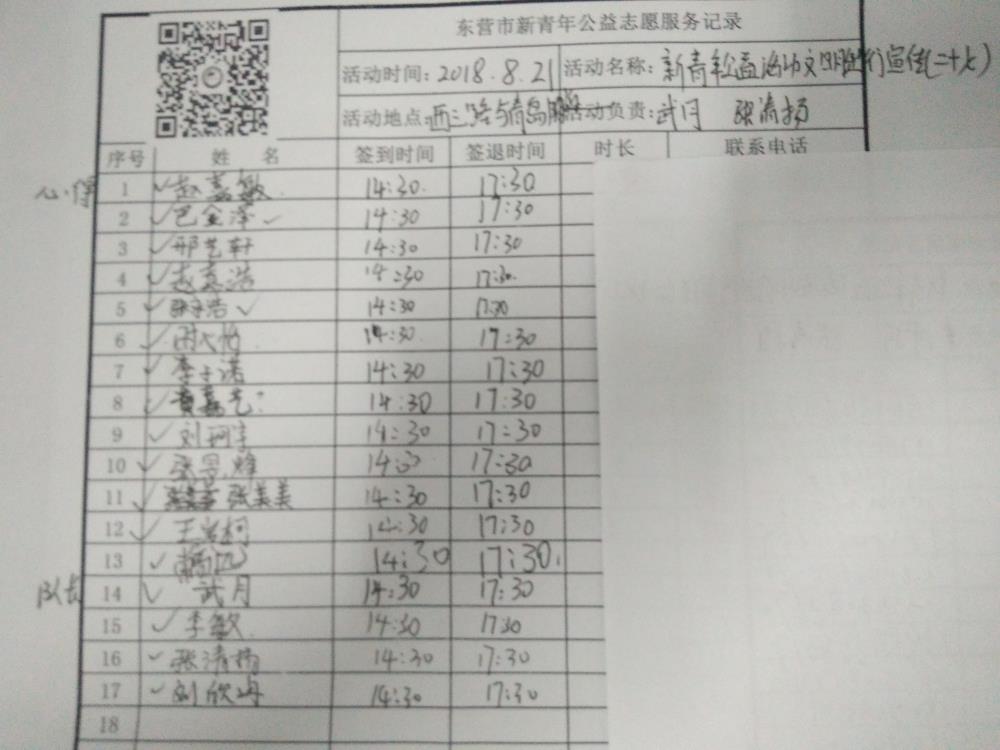 东营市新青年公益志愿服务记录
活动时间：2018.8.21 活动名称：新青年公益活动文明出行宣传(二十七)
活动地点：西三路与青岛路 活动负责：武月 张清扬
序号 姓名 签到时间 签退时间 时长 联系电话
心得 1 ✓赵嘉敏 14:30 17:30
2 ✓巴金泽✓ 14:30 17:30
3 ✓邢艺轩 14:30 17:30
4 ✓赵嘉浩 14:30 17:30
5 ✓ 浩✓ 14:30 17:30
6 ✓ 14:30 17:30
7 ✓李子诺 14:30 17:30
8 ✓黄嘉艺 14:30 17:30
9 ✓刘珂宇 14:30 17:30
10 ✓张 14:30 17:30
11 ✓张美美 14:30 17:30
12 ✓王 柯 14:30 17:30
13 ✓ 14:30 17:30
队长 14 ✓武月 14:30 17:30
15 ✓李敏 14:30 17:30
16 ✓张清扬 14:30 17:30
17 ✓刘欣冉 14:30 17:30
18